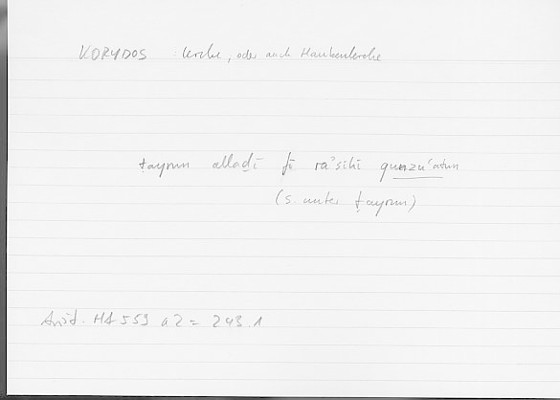 KORYDOS : Lerche, oder auch Haubenlerche
ṭayrun allaḏī fī ra'sihi qunzu'atun
(s. unter ṭayrun)
Arist. HA 559 a 2 = 243.1